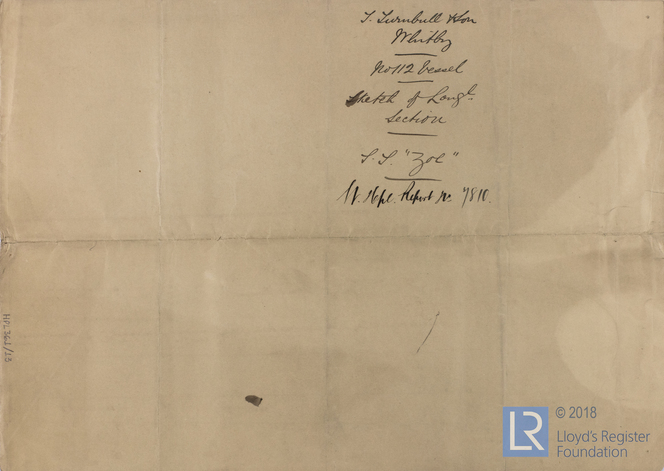 T. Turnbull & Son
Whitby
No 112 Vessel
Sketch of Longl.
Section
S.S. "Zoe"
W. Hpl. Report No. 7810.
HPL361/13
LR
© 2018
Lloyd's Register
Foundation